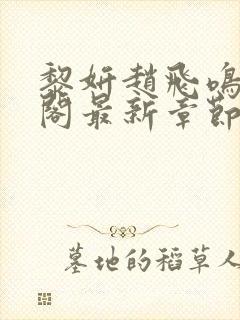 黎妍趙飛鳴
閣最新章節
墓地的稻草人